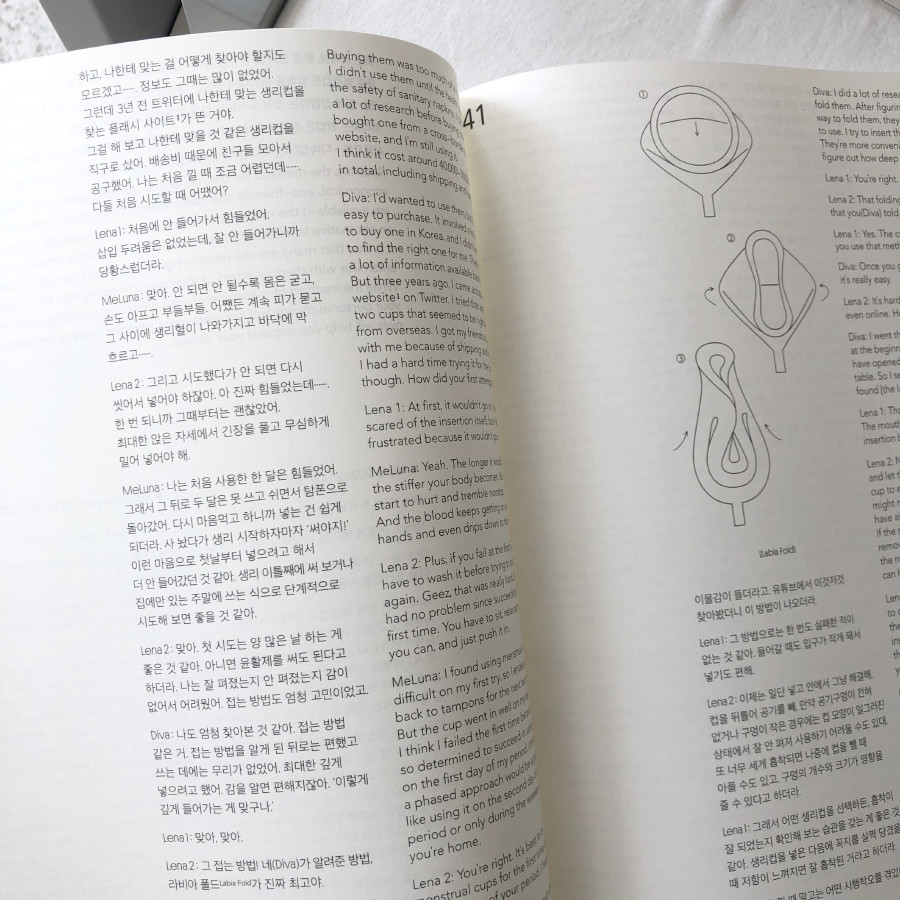 하고, 나한테 맞는 걸 어떻게 찾아야 할지도
모르겠고……. 정보도 그때는 많이 없었어.
그런데 3년 전 트위터에 나한테 맞는 생리컵을
찾는 플래시 사이트¹가 뜬 거야.
그걸 해 보고 나한테 맞을 것 같은 생리컵을
직구로 샀어. 배송비 때문에 친구들 모아서
공구했어. 나는 처음 낄 때 조금 어렵던데…….
다들 처음 시도할 때 어땠어?
Lena 1: 처음에 안 들어가서 힘들었어.
삽입 두려움은 없었는데, 잘 안 들어가니까
당황스럽더라.
MeLuna: 맞아. 안 되면 안 될수록 몸은 굳고,
손도 아프고 부들부들. 어쨌든 계속 피가 묻고
그 사이에 생리혈이 나와가지고 바닥에 막
흐르고…….
Lena 2: 그리고 시도했다가 안 되면 다시
씻어서 넣어야 하잖아. 아 진짜 힘들었는데…….
한 번 되니까 그때부터는 괜찮았어.
최대한 앉은 자세에서 긴장을 풀고 무심하게
밀어 넣어야 해.
MeLuna: 나는 처음 사용한 한 달은 힘들었어.
그래서 그 뒤로 두 달은 못 쓰고 쉬면서 탐폰으로
돌아갔어. 다시 마음먹고 하니까 넣는 건 쉽게
되더라. 사 놨다가 생리 시작하자마자 ‘써야지!’
이런 마음으로 첫날부터 넣으려고 해서
더 안 들어갔던 것 같아. 생리 이틀째에 써 보거나
집에만 있는 주말에 쓰는 식으로 단계적으로
시도해 보면 좋을 것 같아.
Lena 2: 맞아. 첫 시도는 양 많은 날 하는 게
좋은 것 같아. 아니면 윤활제를 써도 된다고
하더라. 나는 잘 펴졌는지 안 펴졌는지 감이
없어서 어려웠어. 접는 방법도 엄청 고민이었고.
Diva: 나도 엄청 찾아본 것 같아. 접는 방법
같은 거. 접는 방법을 알게 된 뒤로는 편했고
쓰는 데에는 무리가 없었어. 최대한 깊게
넣으려고 했어. 감을 알면 편해지잖아. ‘이렇게
깊게 들어가는 게 맞구나.’
Lena 1: 맞아, 맞아.
Lena 2: 그 접는 방법! 네(Diva)가 알려준 방법,
라비아 폴드Labia Fold가 진짜 최고야.
Buying them was too much of
I didn't use them until the
the safety of sanitary napkins
a lot of research before buying
bought one from a cross-border
website, and I'm still using it.
I think it cost around 40,000
in total, including shipping and
Diva: I'd wanted to use them, but
easy to purchase. It involved a
to buy one in Korea, and I didn't
to find the right one for me. There
a lot of information available back
But three years ago, I came across
website1 on Twitter. I tried that and
two cups that seemed to be right
from overseas. I got my friends
with me because of shipping and
I had a hard time trying it for the
though. How did your first attempt
Lena 1: At first, it wouldn't go in.
scared of the insertion itself, but
frustrated because it wouldn't go
MeLuna: Yeah. The longer it
the stiffer your body becomes.
start to hurt and tremble nonstop.
And the blood keeps getting on
hands and even drips down to the
Lena 2: Plus, if you fail at the first
have to wash it before trying to
again. Geez, that was really hard.
had no problem since succeeding
first time. You have to sit, relax
you can, and just push it in.
MeLuna: I found using menstrual
difficult on my first try, so I ended
back to tampons for the next two
But the cup went in well on my
I think I failed the first time because
so determined to succeed
on the first day of my period.
a phased approach would be
like using it on the second day
period or only during the weekend
you're home.
Lena 2: You're right. It's best to
menstrual cups for the first time
of your period.
41
①
②
③
(Labia Fold)
이물감이 들더라고. 유튜브에서 이것저것
찾아봤더니 이 방법이 나오더라.
Lena 1: 그 방법으로는 한 번도 실패한 적이
없는 것 같아. 들어갈 때도 입구가 작게 돼서
넣기도 편해.
Lena 2: 이제는 일단 넣고 안에서 그냥 해결해.
컵을 뒤틀어 공기를 빼. 만약 공기구멍이 전혀
없거나 구멍이 작은 경우에는 컵 모양이 일그러진
상태에서 잘 안 펴져 사용하기 어려울 수도 있대.
또 너무 세게 흡착되면 나중에 컵을 뺄 때
아플 수도 있고. 구멍의 개수와 크기가 영향을
줄 수 있다고 하더라.
Lena 1: 그래서 어떤 생리컵을 선택하든, 흡착이
잘 되었는지 확인해 보는 습관을 갖는 게 좋은 것
같아. 생리컵을 넣은 다음에 꼭지를 살짝 당겼을
때 저항이 느껴지면 잘 흡착된 거라고 하더라.
때 말고는 어떤 시행착오를 겪었
Diva: I did a lot of resea
fold them. After figuring
way to fold them, they
to use. I try to insert th
They're more conveni
figure out how deep
Lena 1: You're right.
Lena 2: That folding
that you(Diva) told
Lena 1: Yes. The c
you use that meth
Diva: Once you g
it's really easy.
Lena 2: It's hard
even online. H
Diva: I went th
at the beginn
have opened
table. So I se
found [the l
Lena 1: Tha
The mouth
insertion
Lena 2: N
and let t
cup to e
might
have a
If the
remov
can
Len
to
the